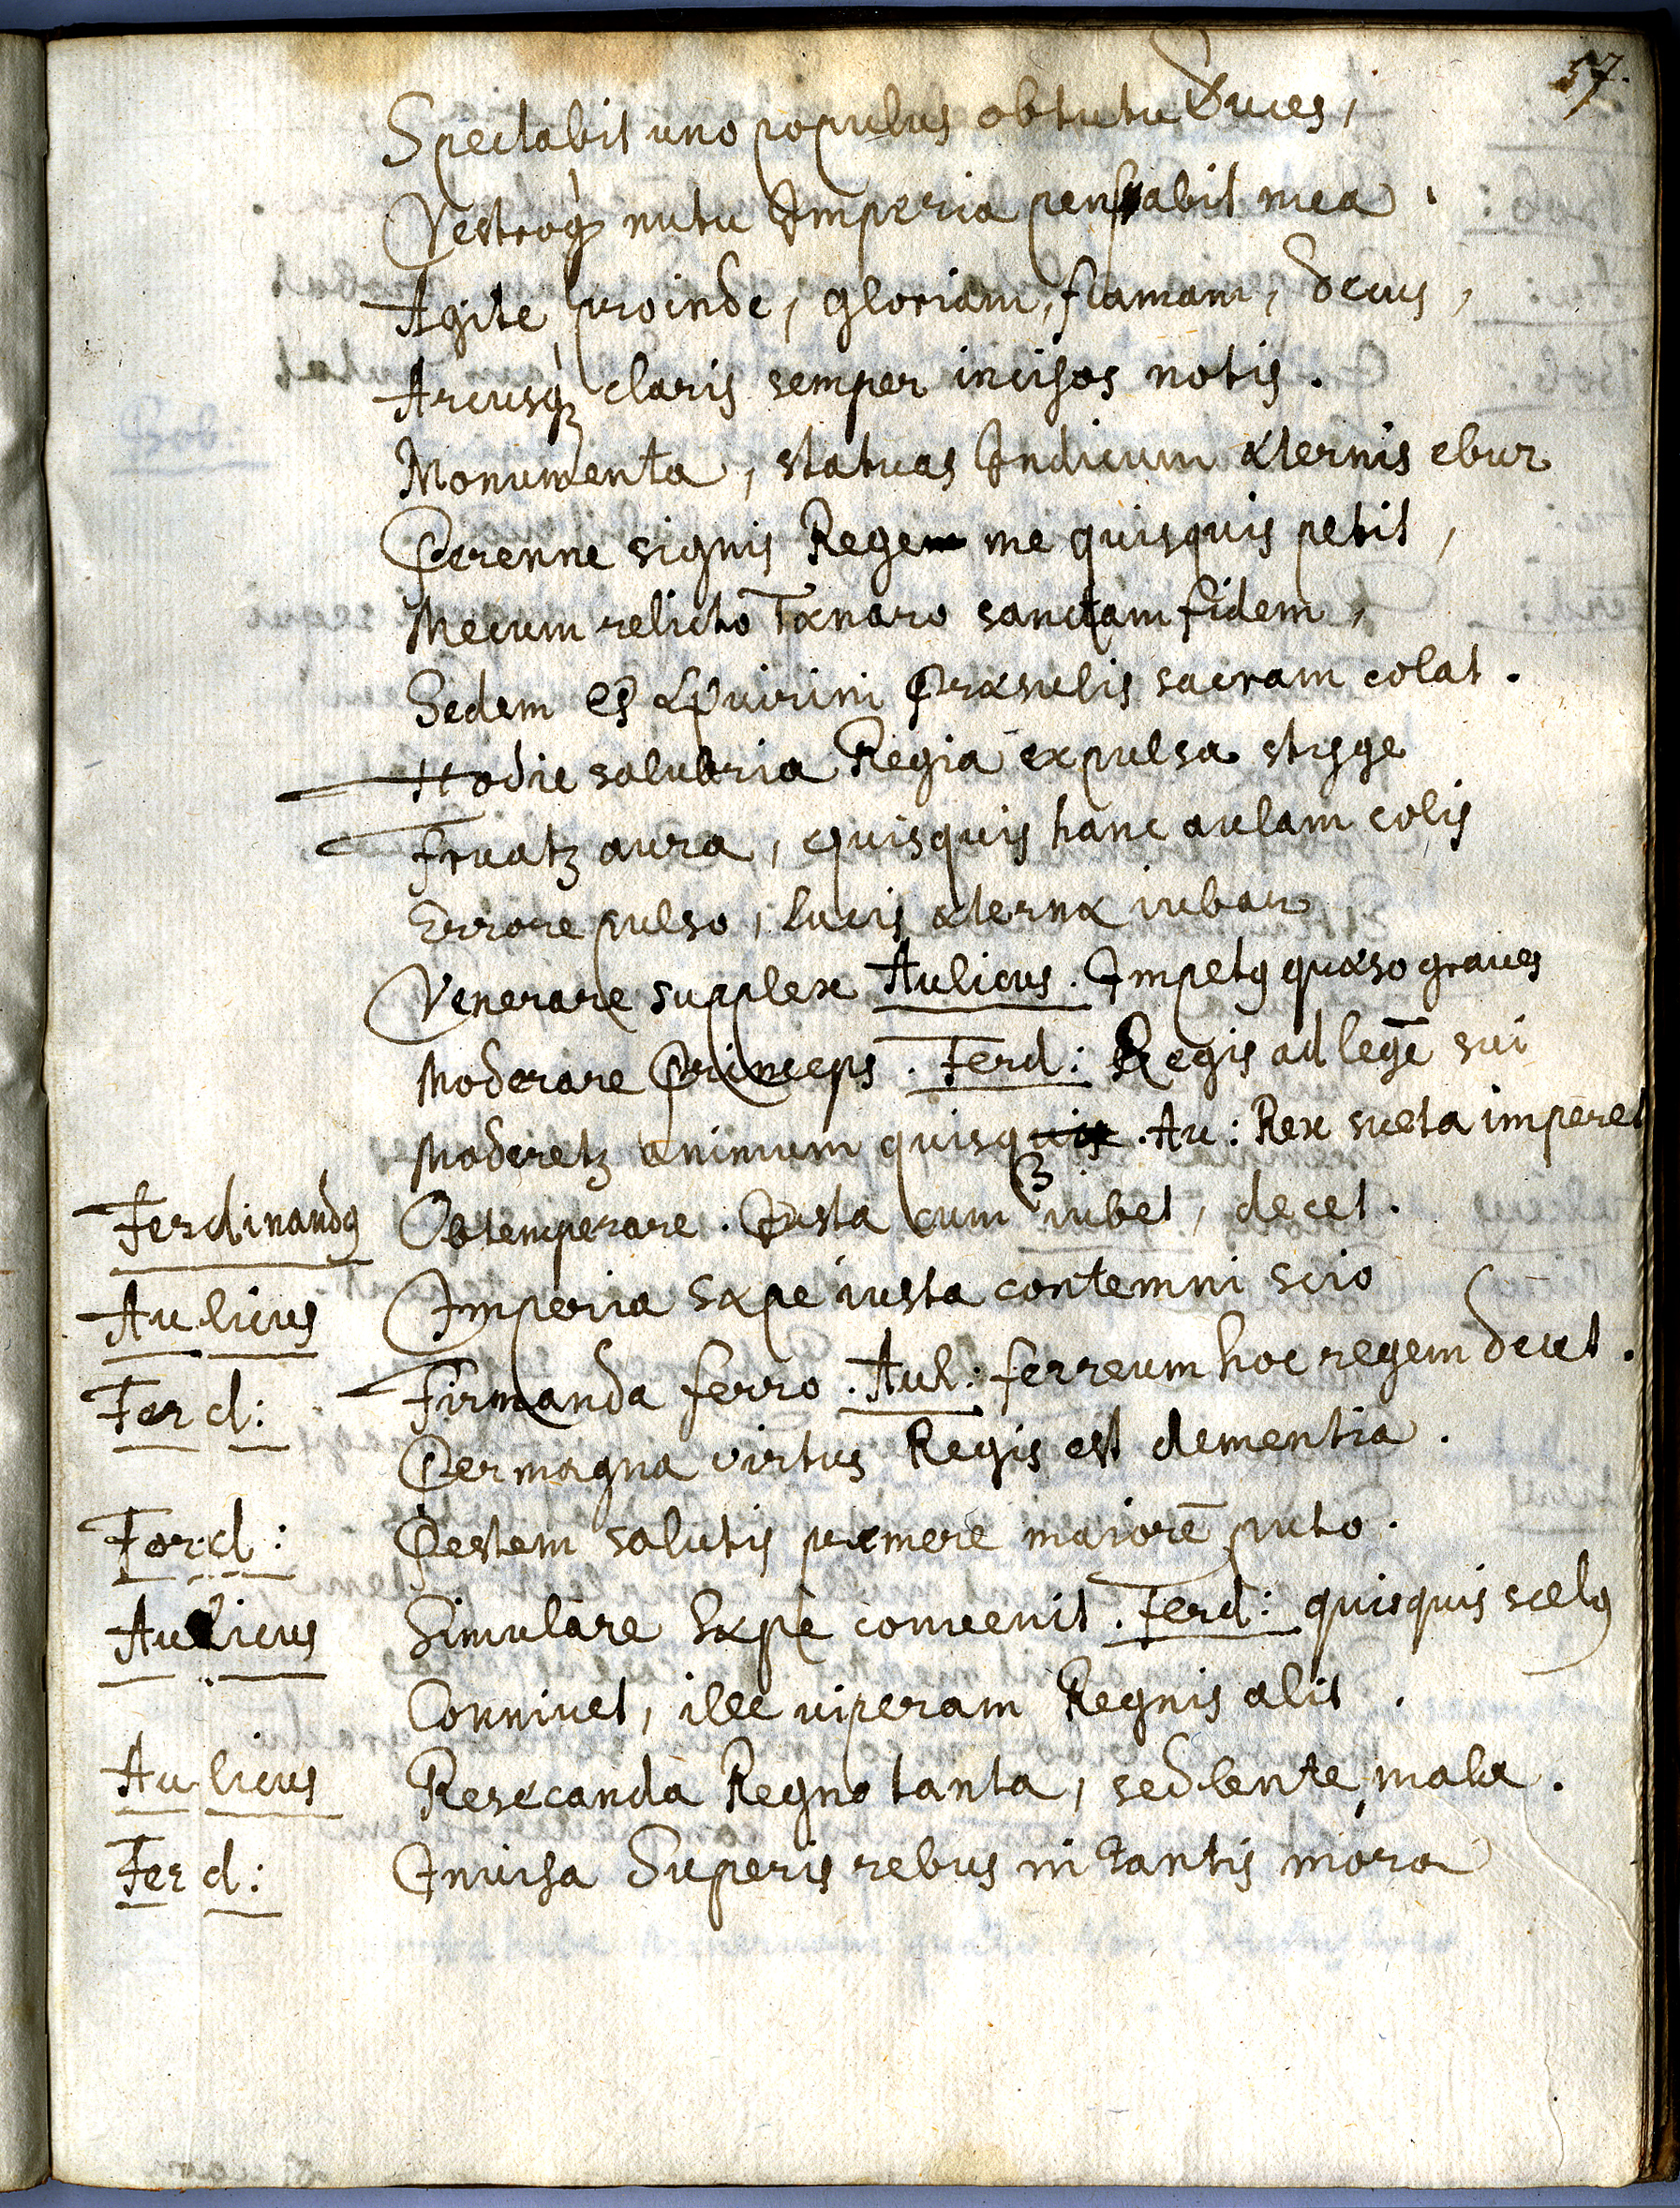 57.
Spectabit uno populus obtutu Duces,
Vestroq́ꝫ nutu Imperia pensabit mea.
Agite proinde, gloriam, famam, decus,
Arcusq́ꝫ claris semper incisos notis.
Monumenta, statuas Indicum æternis ebur
Perenne signis Rege me quisquis petit,
Mecum relicto Tænaro sanctam fidem,
Sedem et Quirini Præsulis sacram colat.
Hodie salubria Regia expulsa stÿge
Fruatꝫ aura, quisquis hanc aulam colis
Errore pulso, lucis æternæ iubar
Venerare supplex Aulicus. Impetꝰ quæso graues
Moderare Princeps. Ferd: Regis ad legē sui
Moderetꝫ animum quisqꝫ. Au: Rex sueta imperet
Ferdinandꝰ Obtemperare. Iusta cum iubet, decet.
Aulicus Imperia sæpe iusta contemni scio
Ferd: Firmanda ferro. Aul: ferreum hoc regem decet.
Permagna virtus Regis est clementia.
Ferd: Pestem salutis premere maiorē puto.
Aulicus Simulare sæpe conuenit. Ferd: quisquis scelꝰ
Conniuet, ille uiperam Regnis alit.
Aulicus Resecanda Regno tanta, sed lente, mala.
Ferd: Inuisa Superis rebus in tantis mora